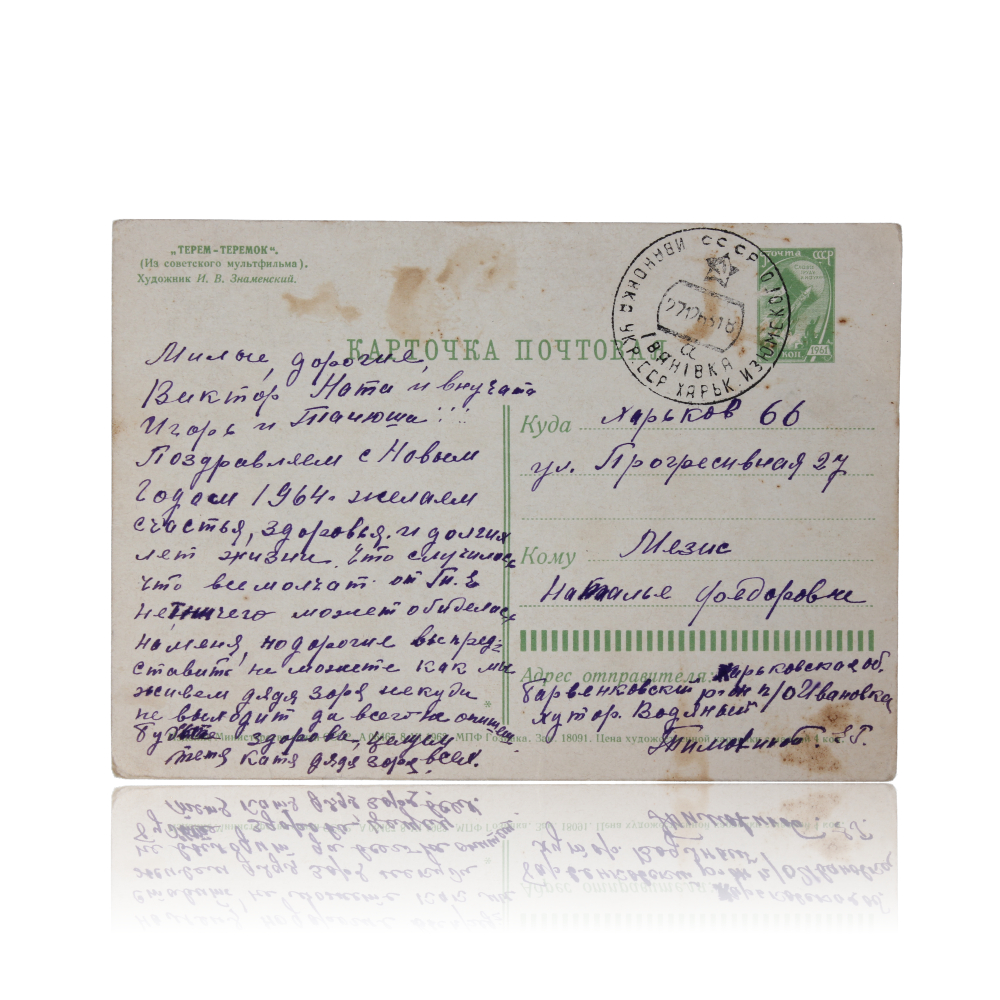 „ТЕРЕМ-ТЕРЕМОК“.
(Из советского мультфильма).
Художник И. В. Знаменский.
КАРТОЧКА ПОЧТОВАЯ
ПОЧТА СССР
КОП. 1961
СССР
ИВАНОВКА УКР. ССР ХАРЬК. ИЗЮМСКОГО
ІВАНІВКА
а
Милые, дорогие,
Виктор Ната и внучата
Игорь и Танюша!!!
Поздравляем с Новым
Годом 1964. желаем
счастья, здоровья. и долгих
лет жизни. Что случилось
что все молчат от
не ничего может обиделась
на меня, но дорогие вы пред-
ставить не можете как мы
живем дядя Зоря некуда
не выходит да всего не опишеш
здорова, целуем
тетя Катя дядя Зоря, всех.
Куда Харьков 66
ул. Прогресивная 27
Кому Мезис
Наталье Федоровне
Адрес отправителя: Харьковская об.
Барвенковский р-н п/о Ивановка
хутор. Водяный
МПФ Гознака. Зак. 18091. Цена художественной карточки с маркой 4 коп.